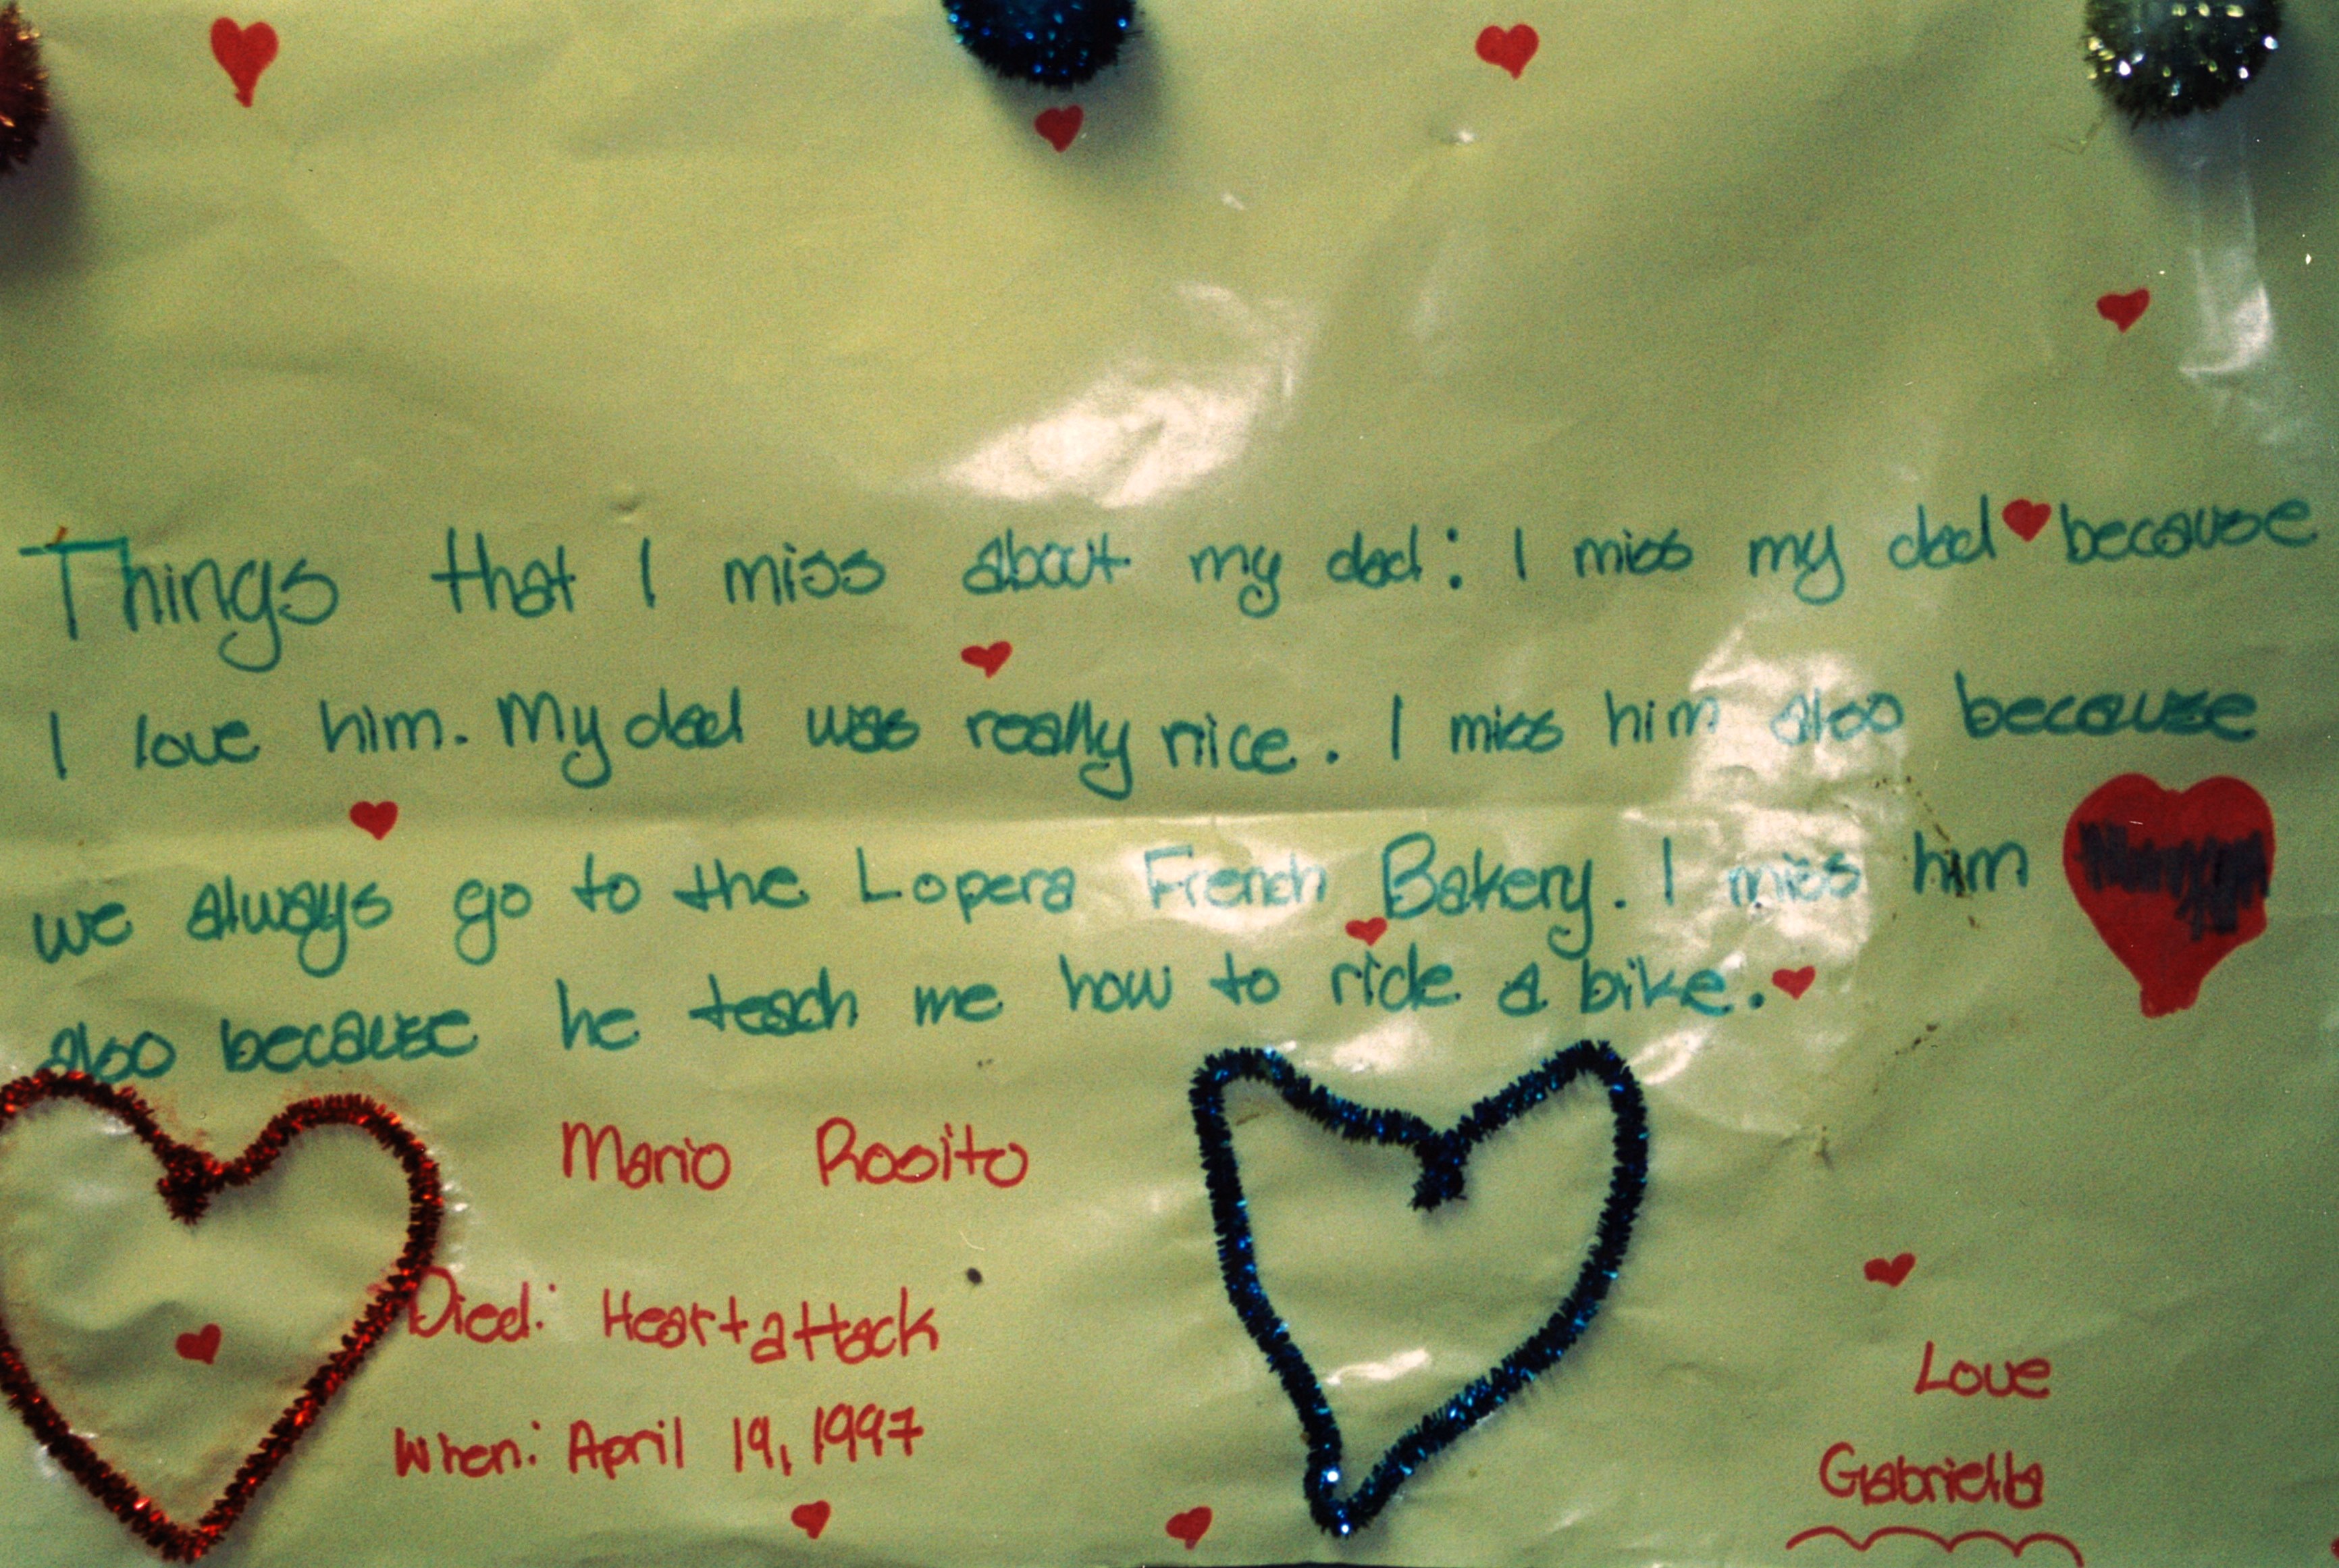 Things that I miss about my dad: I miss my dad because
I love him. My dad was really nice. I miss him also because
we always go to the Lopera French Bakery. I miss him
also because he teach me how to ride a bike.
Mario Rosito
Died: Heart attack
When: April 19, 1997
Love
Gabriella